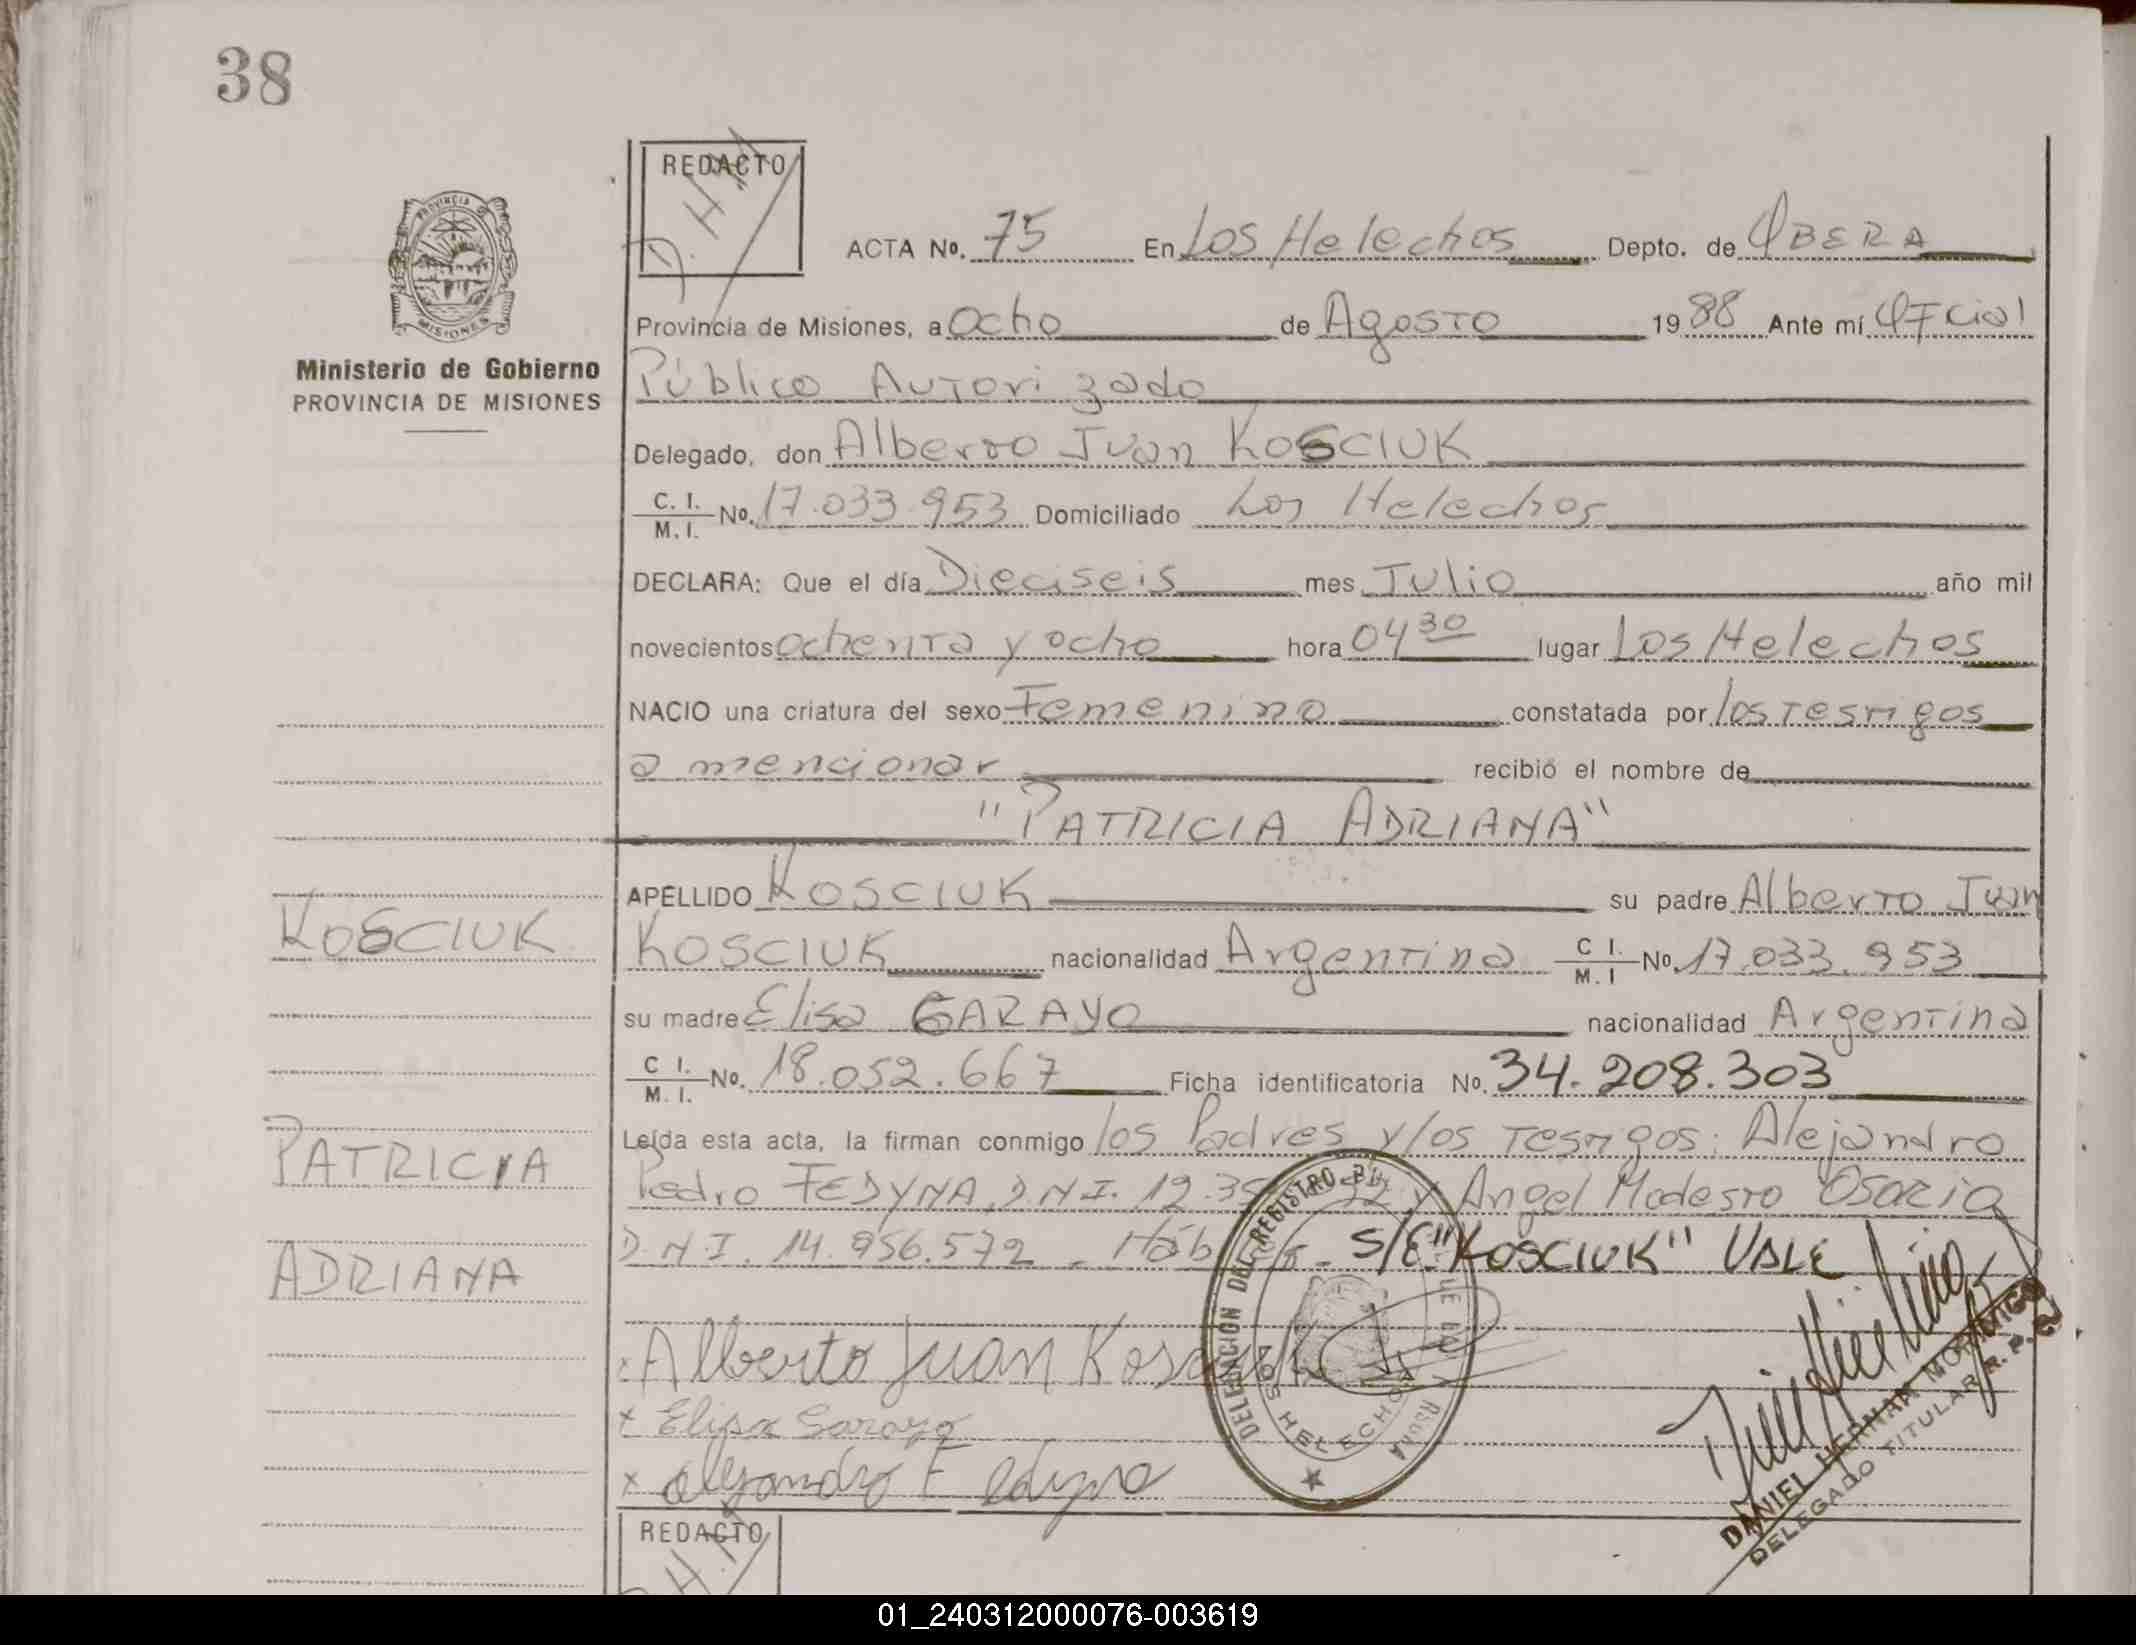 38
REDACTO
D.H.M
PROVINCIA D
MISIONES
Ministerio de Gobierno
PROVINCIA DE MISIONES
ACTA No. 75 En Los Helechos Depto. de OBERA
Provincia de Misiones, a Ocho de Agosto 1988 Ante mí Oficial
Público Autorizado
Delegado, don Alberto Juan KOSCIUK
C. I. M. I. No. 17.033.953 Domiciliado Los Helechos
DECLARA: Que el día Dieciseis mes Julio año mil
novecientos ochenta y ocho hora 04 30 lugar Los Helechos
NACIO una criatura del sexo Femenino constatada por los Testigos
a mencionar recibió el nombre de
"PATRICIA ADRIANA"
APELLIDO KOSCIUK su padre Alberto Juan
KOSCIUK
KOSCIUK nacionalidad Argentina C I. M. I No. 17.033.953
su madre Elisa GARAYO nacionalidad Argentina
C I. M. I. No. 18.052.667 Ficha identificatoria No. 34.208.303
Leída esta acta, la firman conmigo los Padres y los Testigos: Alejandro
PATRICIA
Pedro FEDYNA, D.N.I. 12.35 y Angel Modesto OSORIO
D.N.I. 14.956.572 - S/E "KOSCIUK" VALE
ADRIANA
Alberto Juan Kosciuk
x Elisa Garayo
x Alejandro Fedyna
DELEGACION DEL REGISTRO
LOS HELECHOS
DANIEL HERNAM MORINIGO
DELEGADO TITULAR R. P.
REDACTO
D.H.M
01_240312000076-003619